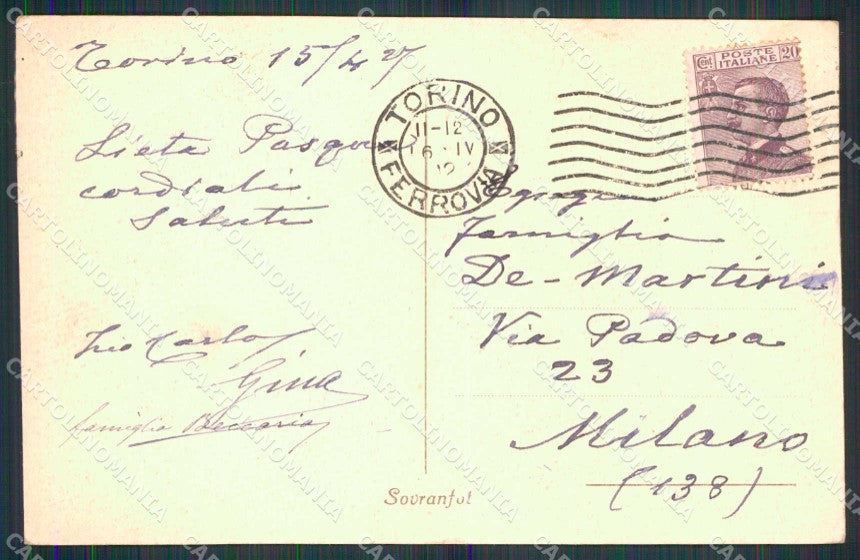 Torino 15/4 27
Lieta Pasqua
cordiali
saluti
Zio Carlo
Gina
famiglia Beccaria
TORINO
11-12
16 IV
FERROVIA
Cent POSTE ITALIANE 20
Egregia
famiglia
De-Martini
Via Padova
23
Milano
(138)
Sovranful
CARTOLINOMANIA